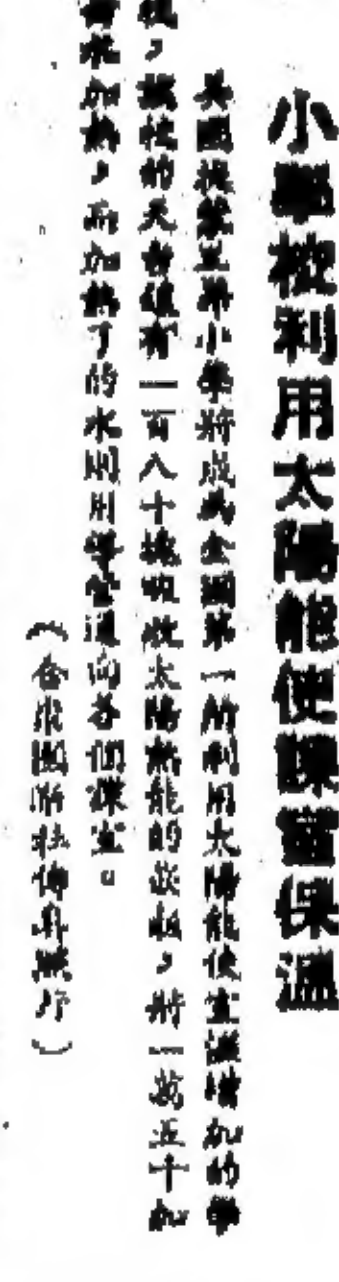 小學校利用太陽能使課室保溫
美國提蒙士小學將成為全國第一所利用太陽能使室溫增加的學
校，該校的天台設有一百八十塊吸收太陽熱能的嵌板，將一萬五千加
侖水加熱，而加熱了的水則用導管通向各個課室。
（合眾國際社傳真照片）